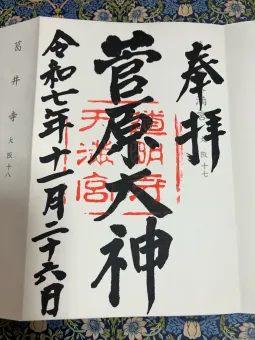 奉拝
大阪十七
菅原大神
道明寺
天満宮
令和七年十一月二十六日
葛井寺
大阪十八